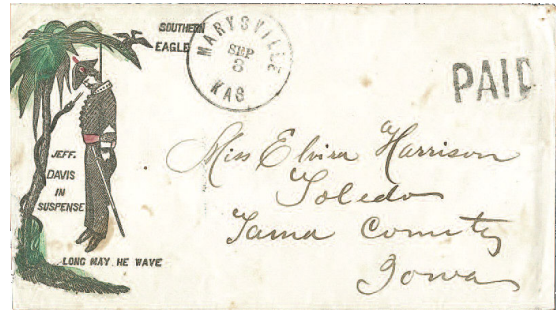 SOUTHERN
EAGLE
MARYSVILLE
SEP
3
KAS.
PAID
JEFF.
DAVIS
IN
SUSPENSE
LONG MAY HE WAVE
Miss Elvira Harrison
Toledo
Tama County
Iowa